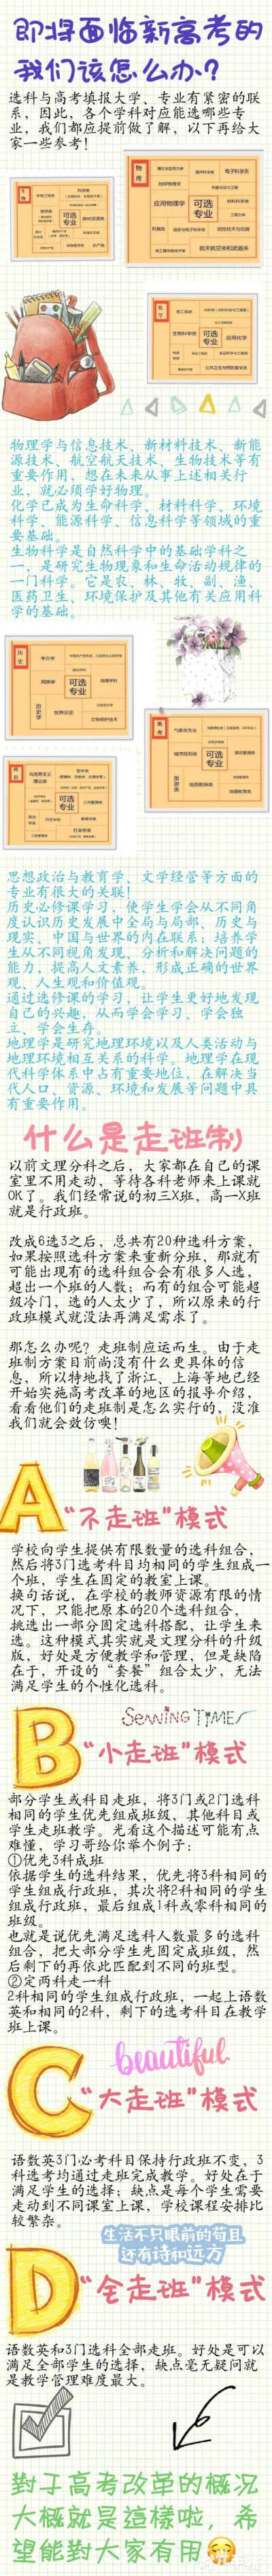 即将面临新高考的
我们该怎么办？
选科与高考填报大学、专业有紧密的联
系，因此，各个学科对应能选哪些专
业，我们都应提前做了解，以下再给大
家一些参考！
生物
可选
专业
物理
电子科学类
应用物理学
可选
专业
材料科学类
航天航空类和武器类
化学
生物科学类
可选
专业
应用化学
公共卫生与预防医学类
物理学与信息技术、新材料技术、新能
源技术、航空航天技术、生物技术等有
重要作用，想在未来从事上述相关行
业，就必须学好物理。
化学已成为生命科学、材料科学、环境
科学、能源科学、信息科学等领域的重
要基础。
生物科学是自然科学中的基础学科之
一，是研究生物现象和生命活动规律的
一门科学。它是农、林、牧、副、渔、
医药卫生、环境保护及其他有关应用科
学的基础。
历史
考古学
可选
专业
历史学
世界历史
可选
专业
政治
可选
专业
思想政治与教育学、文学经营等方面的
专业有很大的关联！
历史必修课学习，使学生学会从不同角
度认识历史发展中全局与局部、历史与
现实、中国与世界的内在联系；培养学
生从不同视角发现、分析和解决问题的
能力，提高人文素养，形成正确的世界
观、人生观和价值观。
通过选修课的学习，让学生更好地发现
自己的兴趣，从而学会学习、学会独
立、学会生存。
地理学是研究地理环境以及人类活动与
地理环境相互关系的科学。地理学在现
代科学体系中占有重要地位，在解决当
代人口、资源、环境和发展等问题中具
有重要作用。
什么是走班制
以前文理分科之后，大家都在自己的课
室里不用走动，等待各科老师来上课就
OK了。我们经常说的初三X班，高一X班
就是行政班。
改成6选3之后，总共有20种选科方案，
如果按照选科方案来重新分班，那就有
可能出现有的选科组合会有很多人选，
超出一个班的人数；而有的组合可能超
级冷门，选的人太少了，所以原来的行
政班模式就没法再满足需求了。
那怎么办呢？走班制应运而生。由于走
班制方案目前尚没有什么更具体的信
息，所以特地找了浙江、上海等地已经
开始实施高考改革的地区的报导介绍，
看看他们的走班制是怎么实行的，没准
我们就会效仿噢！
A
“不走班”模式
学校向学生提供有限数量的选科组合，
然后将3门选考科目均相同的学生组成一
个班，学生在固定的教室上课。
换句话说，在学校的教师资源有限的情
况下，只能把原本的20个选科组合，
挑选出一部分固定选科搭配，让学生来
选。这种模式其实就是文理分科的升级
版，好处是方便教学和管理，但是缺陷
在于，开设的“套餐”组合太少，无法
满足学生的个性化选科。
SewingTIME
B
“小走班”模式
部分学生或科目走班，将3门或2门选科
相同的学生优先组成班级，其他科目或
学生走班教学。光看这个描述可能有点
难懂，学习哥给你举个例子：
①优先3科成班
依据学生的选科结果，优先将3科相同的
学生组成行政班，其次将2科相同的学生
组成行政班，最后组成1科或零科相同的
班级。
也就是说优先满足选科人数最多的选科
组合，把大部分学生先固定成班级，然
后剩下的再依此匹配到不同的班型。
②定两科走一科
2科相同的学生组成行政班，一起上语数
英和相同的2科，剩下的选考科目在教学
班上课。
beautiful
C
“大走班”模式
语数英3门必考科目保持行政班不变，3
科选考均通过走班完成教学。好处在于
满足学生的选择；缺点是每个学生需要
走动到不同课室上课，学校课程安排比
较繁杂。
生活不只眼前的苟且
还有诗和远方
D
“全走班”模式
语数英和3门选科全部走班。好处是可以
满足全部学生的选择，缺点毫无疑问就
是教学管理难度最大。
對于高考改革的概况
大概就是這樣啦，希
望能對大家有用